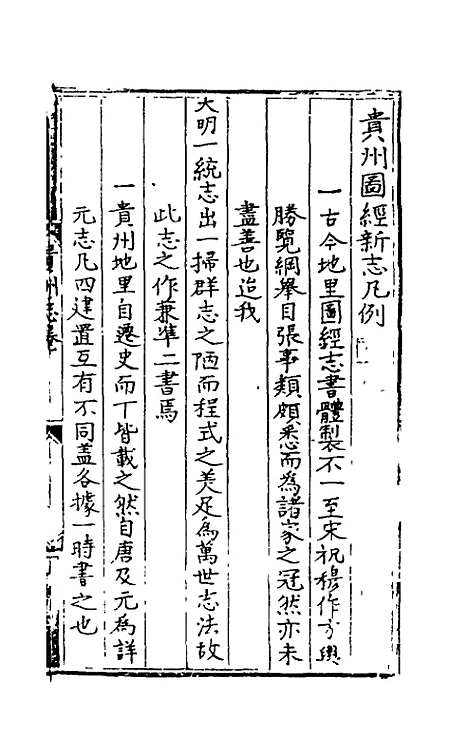 貴州圖經新志凡例
一古今地里圖經志書體製不一至宋祝穆作方輿
勝覽綱舉目張事類頗悉而為諸家之冠然亦未
盡善也迨我
大明一統志出一掃群志之陋而程式之美足為萬世志法故
此志之作兼準二書焉
一貴州地里自遷史而丅皆載之然自唐及元為詳
元志凡四建置互有不同盖各據一時書之也